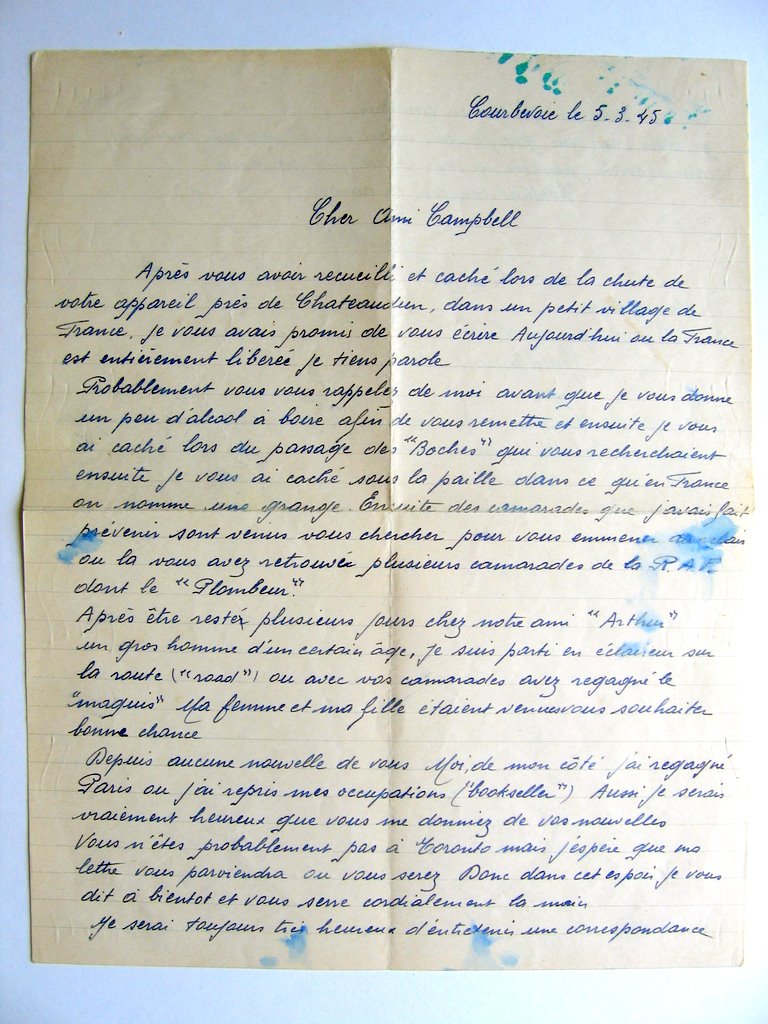 Courbevoie le 5-3-45
Cher Ami Campbell
Après vous avoir recueilli et caché lors de la chute de
votre appareil près de Chateaudun, dans un petit village de
France, je vous avais promis de vous écrire Aujourd'hui ou la France
est entièrement libérée je tiens parole
Probablement vous vous rappelez de moi avant que je vous donne
un peu d'alcool à boire afin de vous remettre et ensuite je vous
ai caché lors du passage des "Boches" qui vous recherchaient
ensuite je vous ai caché sous la paille dans ce qu'en France
on nomme une grange. Ensuite des camarades que j'avais fait
prévenir sont venus vous chercher pour vous emmener
ou la vous avez retrouvée plusieurs camarades de la R.A.F.
dont le "Plombeur".
Après être restér plusieurs jours chez notre ami "Arthur"
un gros homme d'un certain âge, je suis parti en éclaireur sur
la route ("road") ou avec vos camarades avez regagné le
"maquis" Ma femme et ma fille étaient venues vous souhaiter
bonne chance
Depuis aucune nouvelle de vous Moi, de mon côté j'ai regagné
Paris ou j'ai repris mes occupations ("bookseller") Aussi je serais
vraiement heureux que vous me donniez de vos nouvelles
Vous n'êtes probablement pas à Toronto mais j'espère que ma
lettre vous parviendra ou vous serez Donc dans cet espoir je vous
dit à bientot et vous serre cordialement la main
Je serai toujours très heureux d'entretenir une correspondance